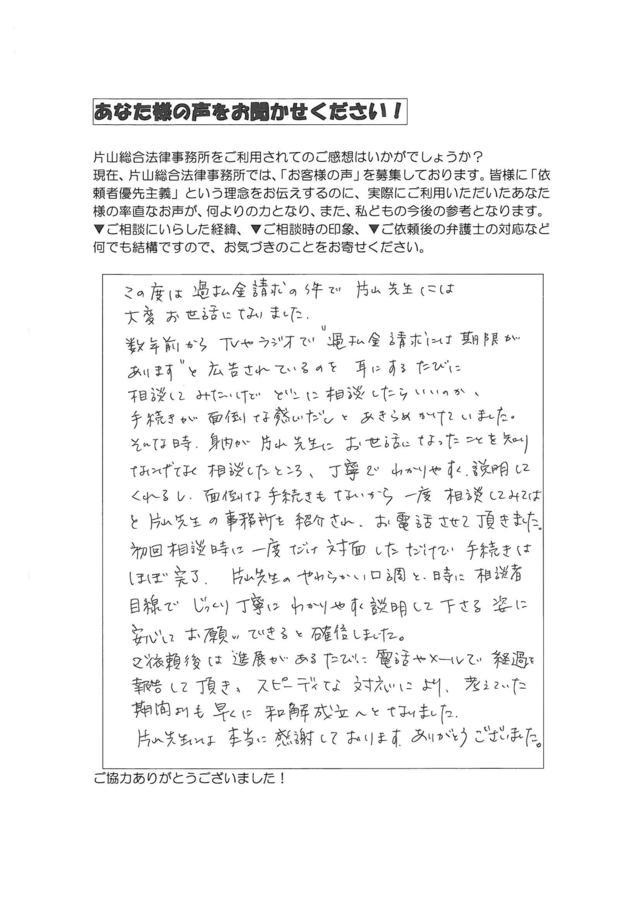 あなた様の声をお聞かせください！
片山総合法律事務所をご利用されてのご感想はいかがでしょうか？
現在、片山総合法律事務所では、「お客様の声」を募集しております。皆様に「依
頼者優先主義」という理念をお伝えするのに、実際にご利用いただいたあなた
様の率直なお声が、何よりの力となり、また、私どもの今後の参考となります。
▼ご相談にいらした経緯、▼ご相談時の印象、▼ご依頼後の弁護士の対応など
何でも結構ですので、お気づきのことをお寄せください。
この度は過払金請求の件で片山先生には
大変お世話になりました.
数年前からTVやラジオで"過払金請求には期限が
あります"と広告されているのを耳にするたびに
相談してみたいけどどこに相談したらいいのか、
手続きが面倒な感じだしとあきらめかけていました。
そんな時、身内が片山先生にお世話になったことを知り
なにげなく相談したところ、丁寧でわかりやすく説明して
くれるし、面倒な手続きもないから一度相談してみては
と片山先生の事務所を紹介され、お電話させて頂きました。
初回相談時に一度だけ対面しただけで手続きは
ほぼ完了. 片山先生のやわらかい口調と、時に相談者
目線でじっくり丁寧にわかりやすく説明して下さる姿に
安心してお願いできると確信しました。
ご依頼後は進展があるたびに電話やメールで経過を
報告して頂き、スピーディな対応により、考えていた
期間よりも早くに和解成立へとなりました.
片山先生には本当に感謝しております.ありがとうございました。
ご協力ありがとうございました！